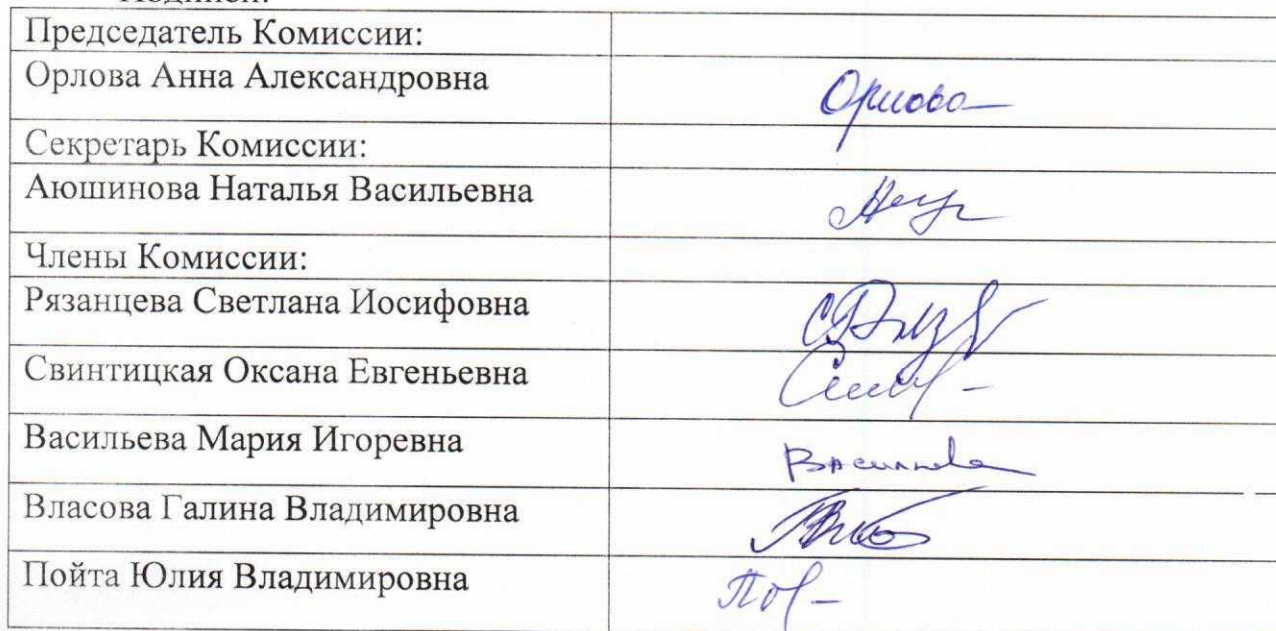 Председатель Комиссии:
Орлова Анна Александровна Орлова
Секретарь Комиссии:
Аюшинова Наталья Васильевна
Члены Комиссии:
Рязанцева Светлана Иосифовна
Свинтицкая Оксана Евгеньевна
Васильева Мария Игоревна
Власова Галина Владимировна
Пойта Юлия Владимировна